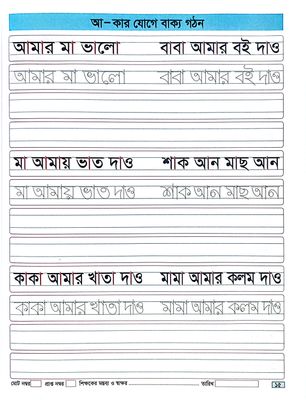 আ-কার যোগে বাক্য গঠন
আমার মা ভালো বাবা আমার বই দাও
আমার মা ভালো বাবা আমার বই দাও
মা আমায় ভাত দাও শাক আন মাছ আন
মা আমায় ভাত দাও শাক আন মাছ আন
কাকা আমার খাতা দাও মামা আমার কলম দাও
কাকা আমার খাতা দাও মামা আমার কলম দাও
মোট নম্বর প্রাপ্ত নম্বর শিক্ষকের মন্তব্য ও স্বাক্ষর তারিখ ১৫